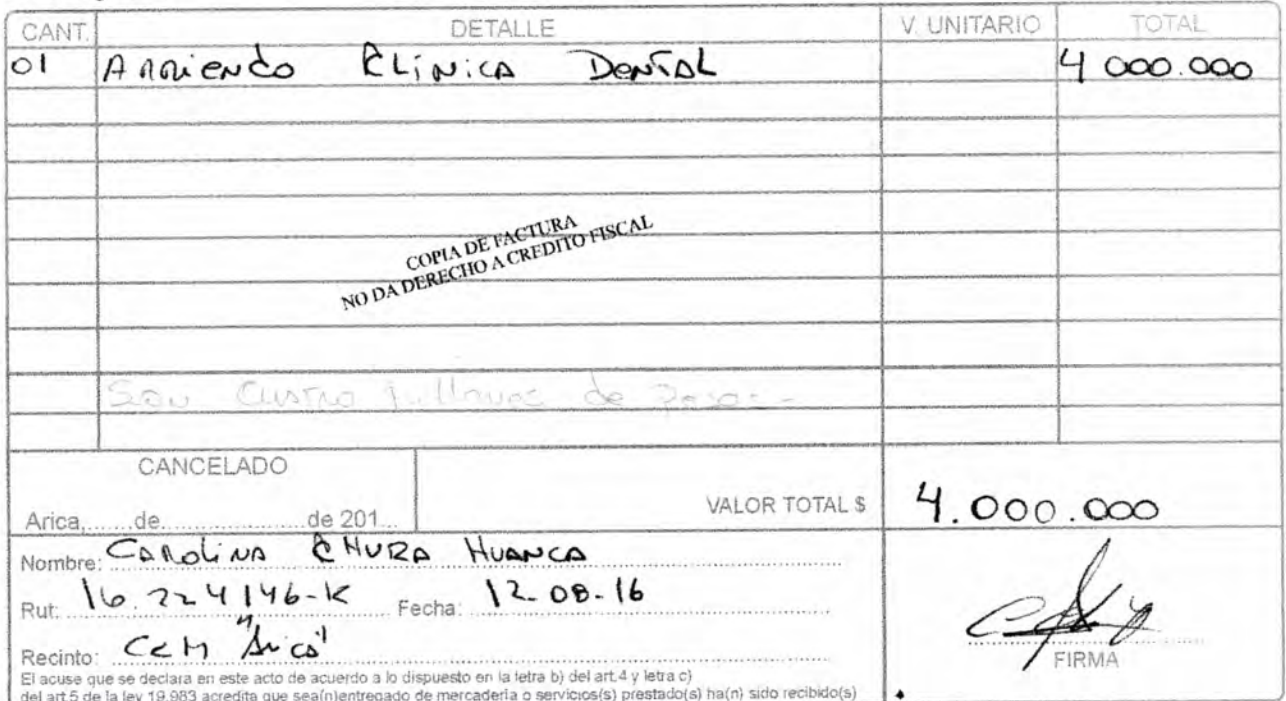 CANT. DETALLE V. UNITARIO TOTAL
01 Arriendo Clinica Dental 4 000.000
COPIA DE FACTURA
NO DA DERECHO A CREDITO FISCAL
Son Cuatro millones de pesos.-
CANCELADO
Arica,.......de.......................de 201...
VALOR TOTAL $ 4.000.000
Nombre: CAROLINA CHURA HUANCA
Rut: 16.224146-K Fecha: 12.08.16
Recinto: "Arica"
FIRMA
El acuse que se declara en este acto de acuerdo a lo dispuesto en la letra b) del art.4 y letra c)
del art.5 de la ley 19.983 acredita que sea(n)entregado de mercaderia o servicios(s) prestado(s) ha(n) sido recibido(s)